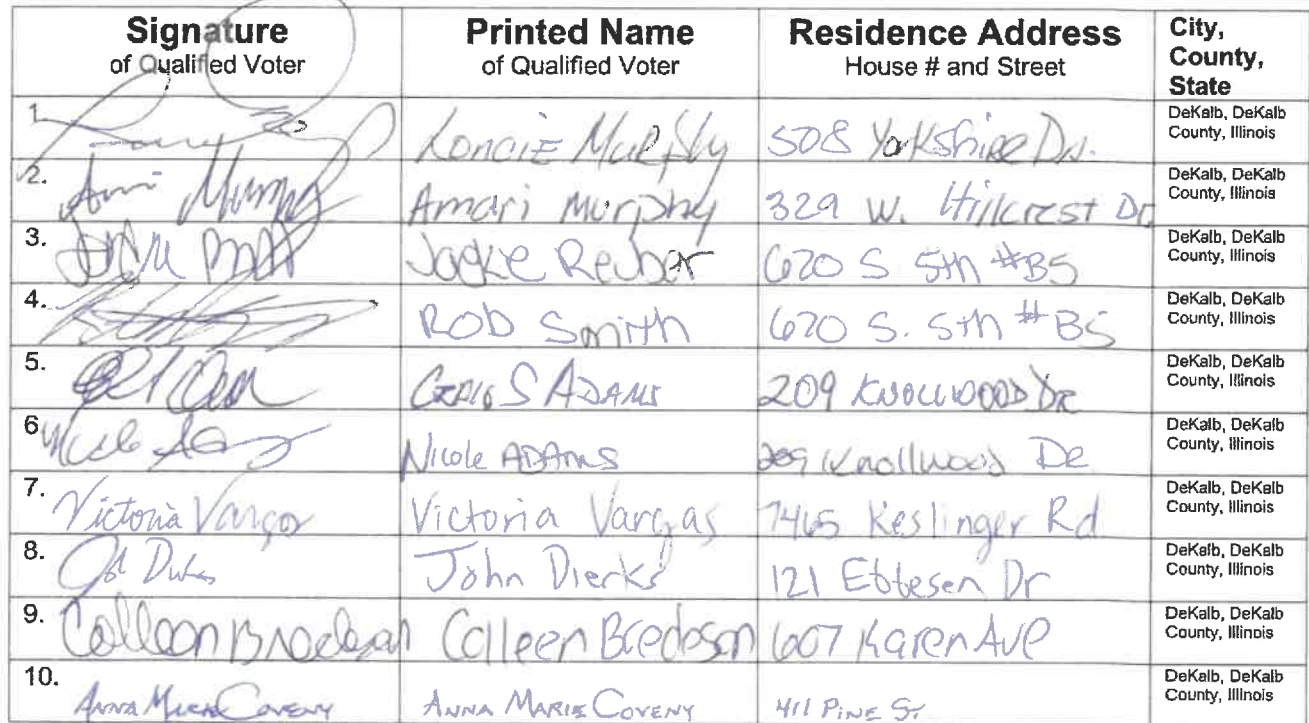 Signature Printed Name Residence Address City, County, State
of Qualified Voter of Qualified Voter House # and Street
1. Murphy 508 Yorkshire Dr. DeKalb, DeKalb County, Illinois
2. Amari Murphy 329 W. Hillcrest Dr DeKalb, DeKalb County, Illinois
3. Jackie Reuber 620 S 5th #B5 DeKalb, DeKalb County, Illinois
4. Rob Smith 620 S. 5th #B5 DeKalb, DeKalb County, Illinois
5. Craig S Adams 209 Knollwood Dr DeKalb, DeKalb County, Illinois
6. Nicole Adams 209 Knollwood Dr DeKalb, DeKalb County, Illinois
7. Victoria Vargas Victoria Vargas 7465 Keslinger Rd DeKalb, DeKalb County, Illinois
8. John Dierks 121 Ebbesen Dr DeKalb, DeKalb County, Illinois
9. Colleen Bredeson Colleen Bredeson 607 Karen Ave DeKalb, DeKalb County, Illinois
10. Anna Marie Coveny Anna Marie Coveny 411 Pine St. DeKalb, DeKalb County, Illinois